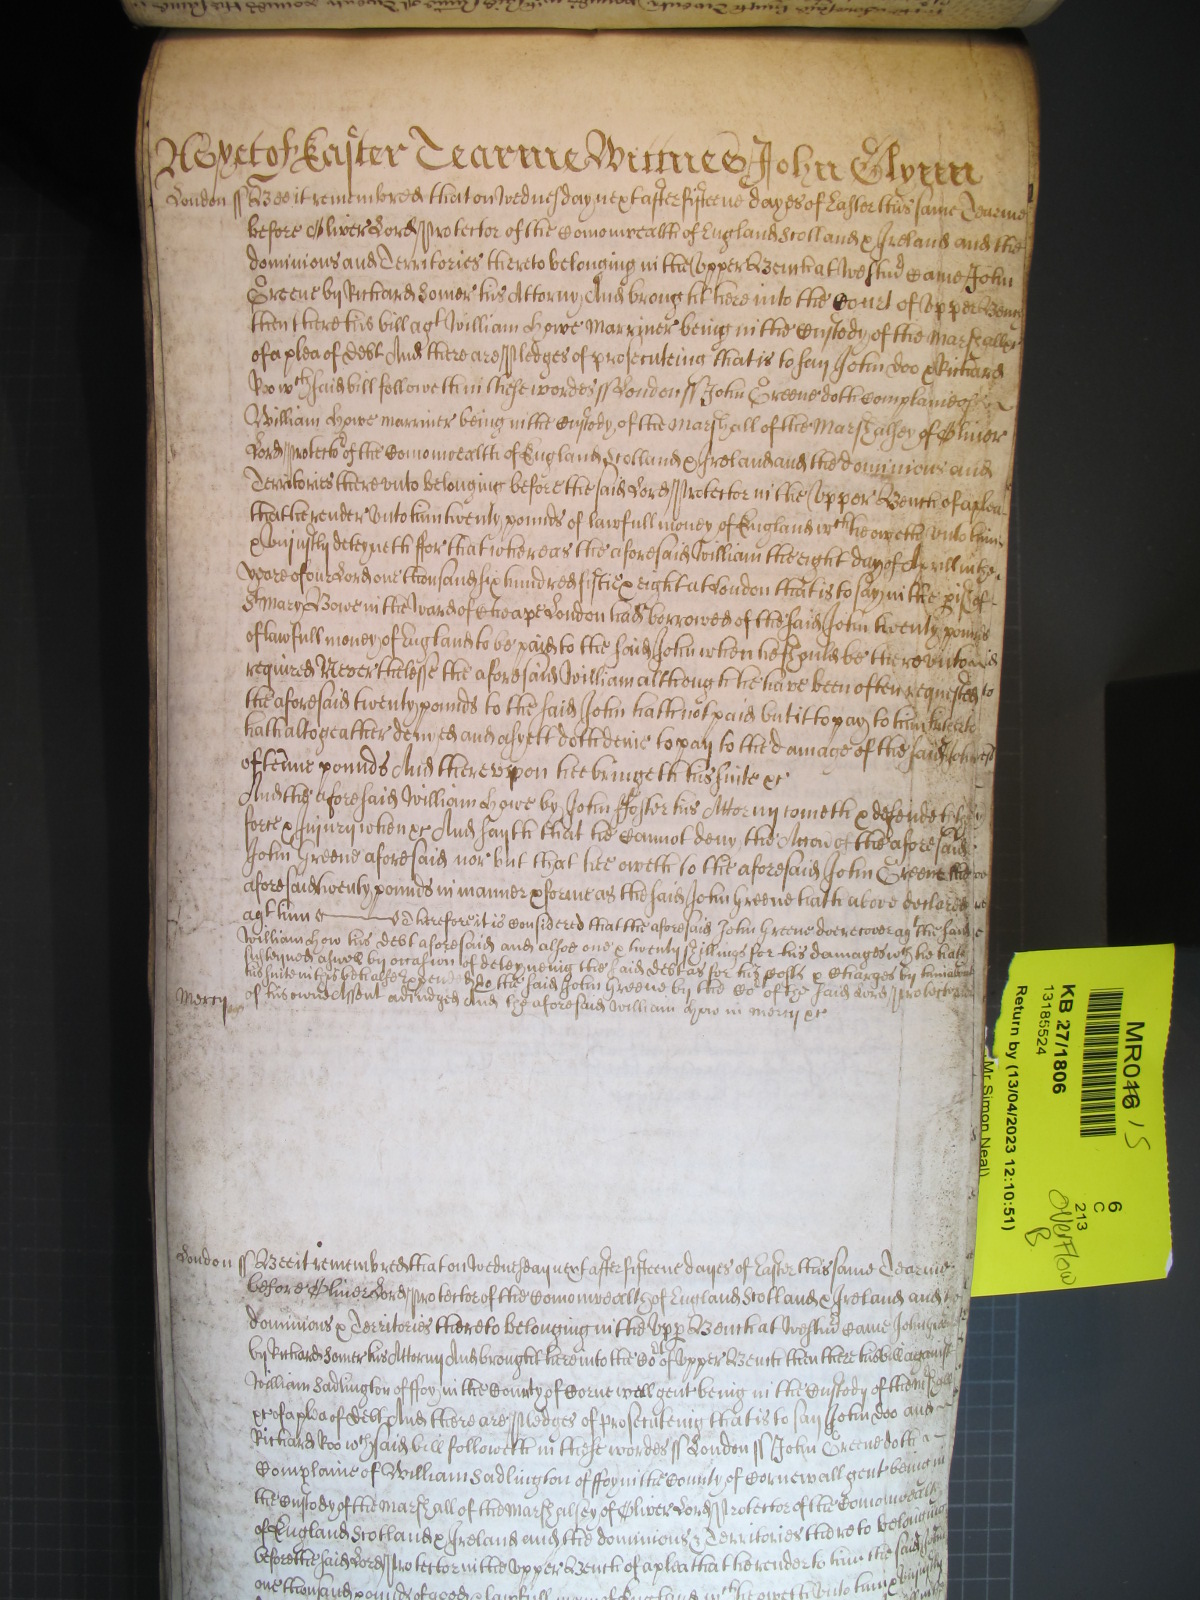 As yet of Easter Tearme Witnes John Glynn
London ss Bee it remembred that on Wednesday next after fifteene dayes of Easter this same Tearme
before Oliver Lord Protector of the Comonwealth of England Scotland & Ireland and the
dominions and Territories thereto belonging in the Upper Bench at Westmr Came John
Greene by Richard Somer his Attorny And brought here into the Court of Upper Bench
then there his bill agt William Howe Marriner being in the Custody of the Marshall &c
of a plea of Debt And there are Pledges of prosecuteing that is to say John Doo & Richard
Roo wch said bill followeth in these wordes ss London ss John Greene doth Complaine of
William Howe marriner being in the Custody of the Marshall of the Marshalsey of Oliver
Lord Protector of the Comonwealth of England Scotland & Ireland and the dominions and
Territories there unto belonging before the said Lord Protector in the Upper Bench of a plea
that he render unto him twenty pounds of lawfull money of England wch he oweth unto him
& Uniustly deteyneth ffor that whereas the aforesaid William the eight day of Aprill in the
yeare of our Lord one thousand six hundred fiftie & eight at London that is to say in the pish of
St Mary Bowe in the Ward of Cheape London had borrowed of the said John twenty pounds
of lawfull money of England to be paid to the said John when he should be thereunto
required Neverthelesse the aforesaid William although he have been often requested to
the aforesaid twenty pounds to the said John hath not paid but it to pay to him hitherto
hath altogeather denyed and as yett doth denie to pay to the damage of the said John
of tenne pounds And thereupon hee bringeth his suite &c
And the aforesaid William Howe by John ffoster his Attorny cometh & defendeth the
force & Iniury when &c And sayth that he Cannot deny the Accon of the aforesaid
John Greene aforesaid nor but that hee oweth to the aforesaid John Greene the
aforesaid twenty pounds in manner & forme as the said John Greene hath above declared
agt him Therefore it is Considered that the aforesaid John Greene doe recover agt the said
William How his debt aforesaid and alsoe one & twenty shillings for his damages wch he hath
susteyned aswell by occasion of deteyneing the said debt as for his Costs & Charges by him about
his suite in this behalfe expended to the said John Greene by the Cot of the said Lord Protector
Mercy of his owne Assent adiudged And the aforesaid William How in mercy &c
London ss Bee it remembred that on Wednesday next after fifteene dayes of Easter this same Tearme
before Oliver Lord Protector of the Comonwealth of England Scotland & Ireland and
dominions & Territories thereto belonging in the Upp Bench at Westmr Came John
by Richard Somer his Attorny And brought here into the Cot of Upper Bench then there his bill against
William Sadlington of ffoy in the County of Cornewell gent being in the Custody of the Marshall
&c of a plea of Debt And there are Pledges of prosecuteing that is to say John Doo and
Richard Roo wch said bill followeth in these wordes ss London ss John Greene doth
Complaine of William Sadlington of ffoy in the County of Cornewall gent being in
the Custody of the Marshall of the Marshalsey of Oliver Lord Protector of the Comonwealth
of England Scotland & Ireland and the dominions & Territories thereto belonging
before the said Lord Protector in the Upper Bench of a plea that he render to him the said John
one thousand pounds of good & lawfull money of England wch he oweth unto him & Uniustly
MR046 15
KB 27/1806
13185524
Return by (13/04/2023 12:10:51)
(Mr Simon Neal)
6
C
213
Overflow
B.